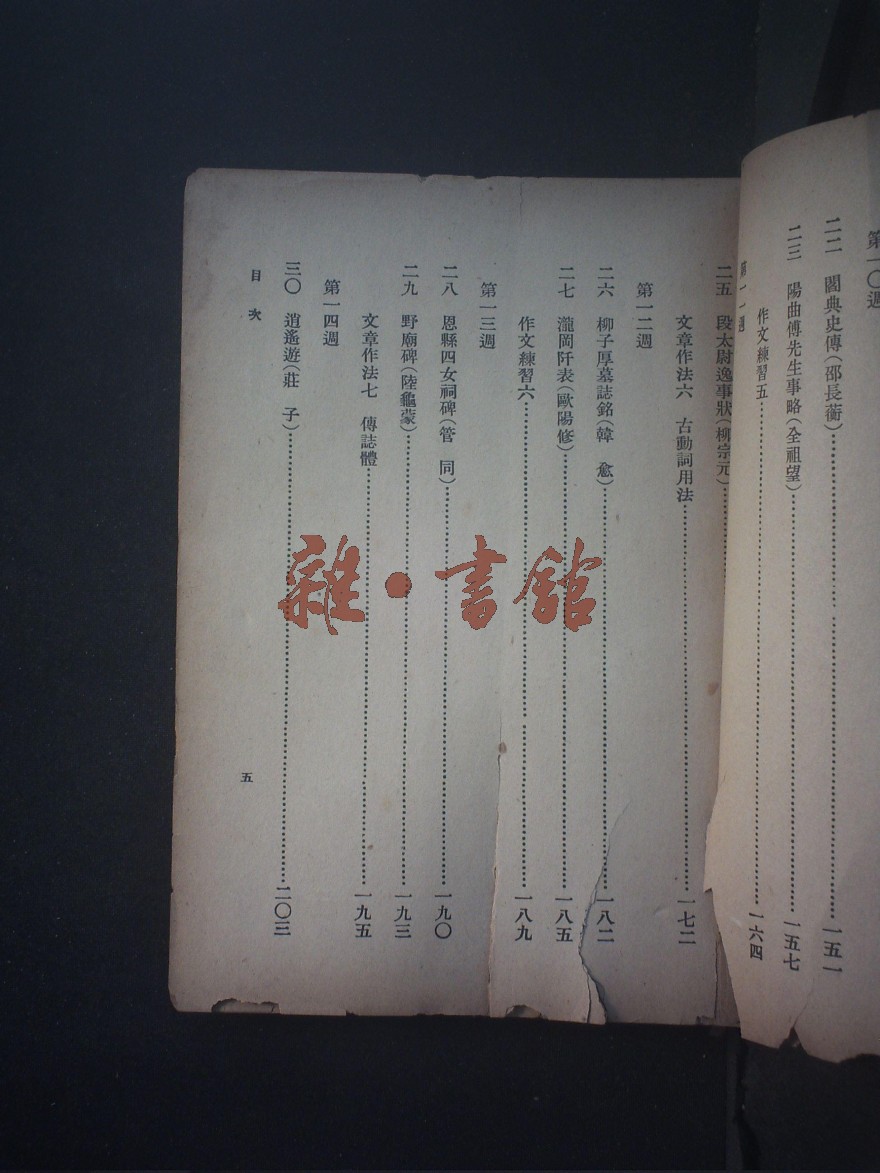 第一〇週
二二 閻典史傳(邵長蘅)……一五一
二三 陽曲傅先生事略(全祖望)……一五七
作文練習五……一六四
第一一週
二五 段太尉逸事狀(柳宗元)……
文章作法六 古動詞用法……一七二
第一二週
二六 柳子厚墓誌銘(韓 愈)……一八二
二七 瀧岡阡表(歐陽修)……一八五
作文練習六……一八九
第一三週
二八 恩縣四女祠碑(管 同)……一九〇
二九 野廟碑(陸龜蒙)……一九三
文章作法七 傳誌體……一九五
第一四週
三〇 逍遙遊(莊 子)……二〇三
目次
五
雜·書館